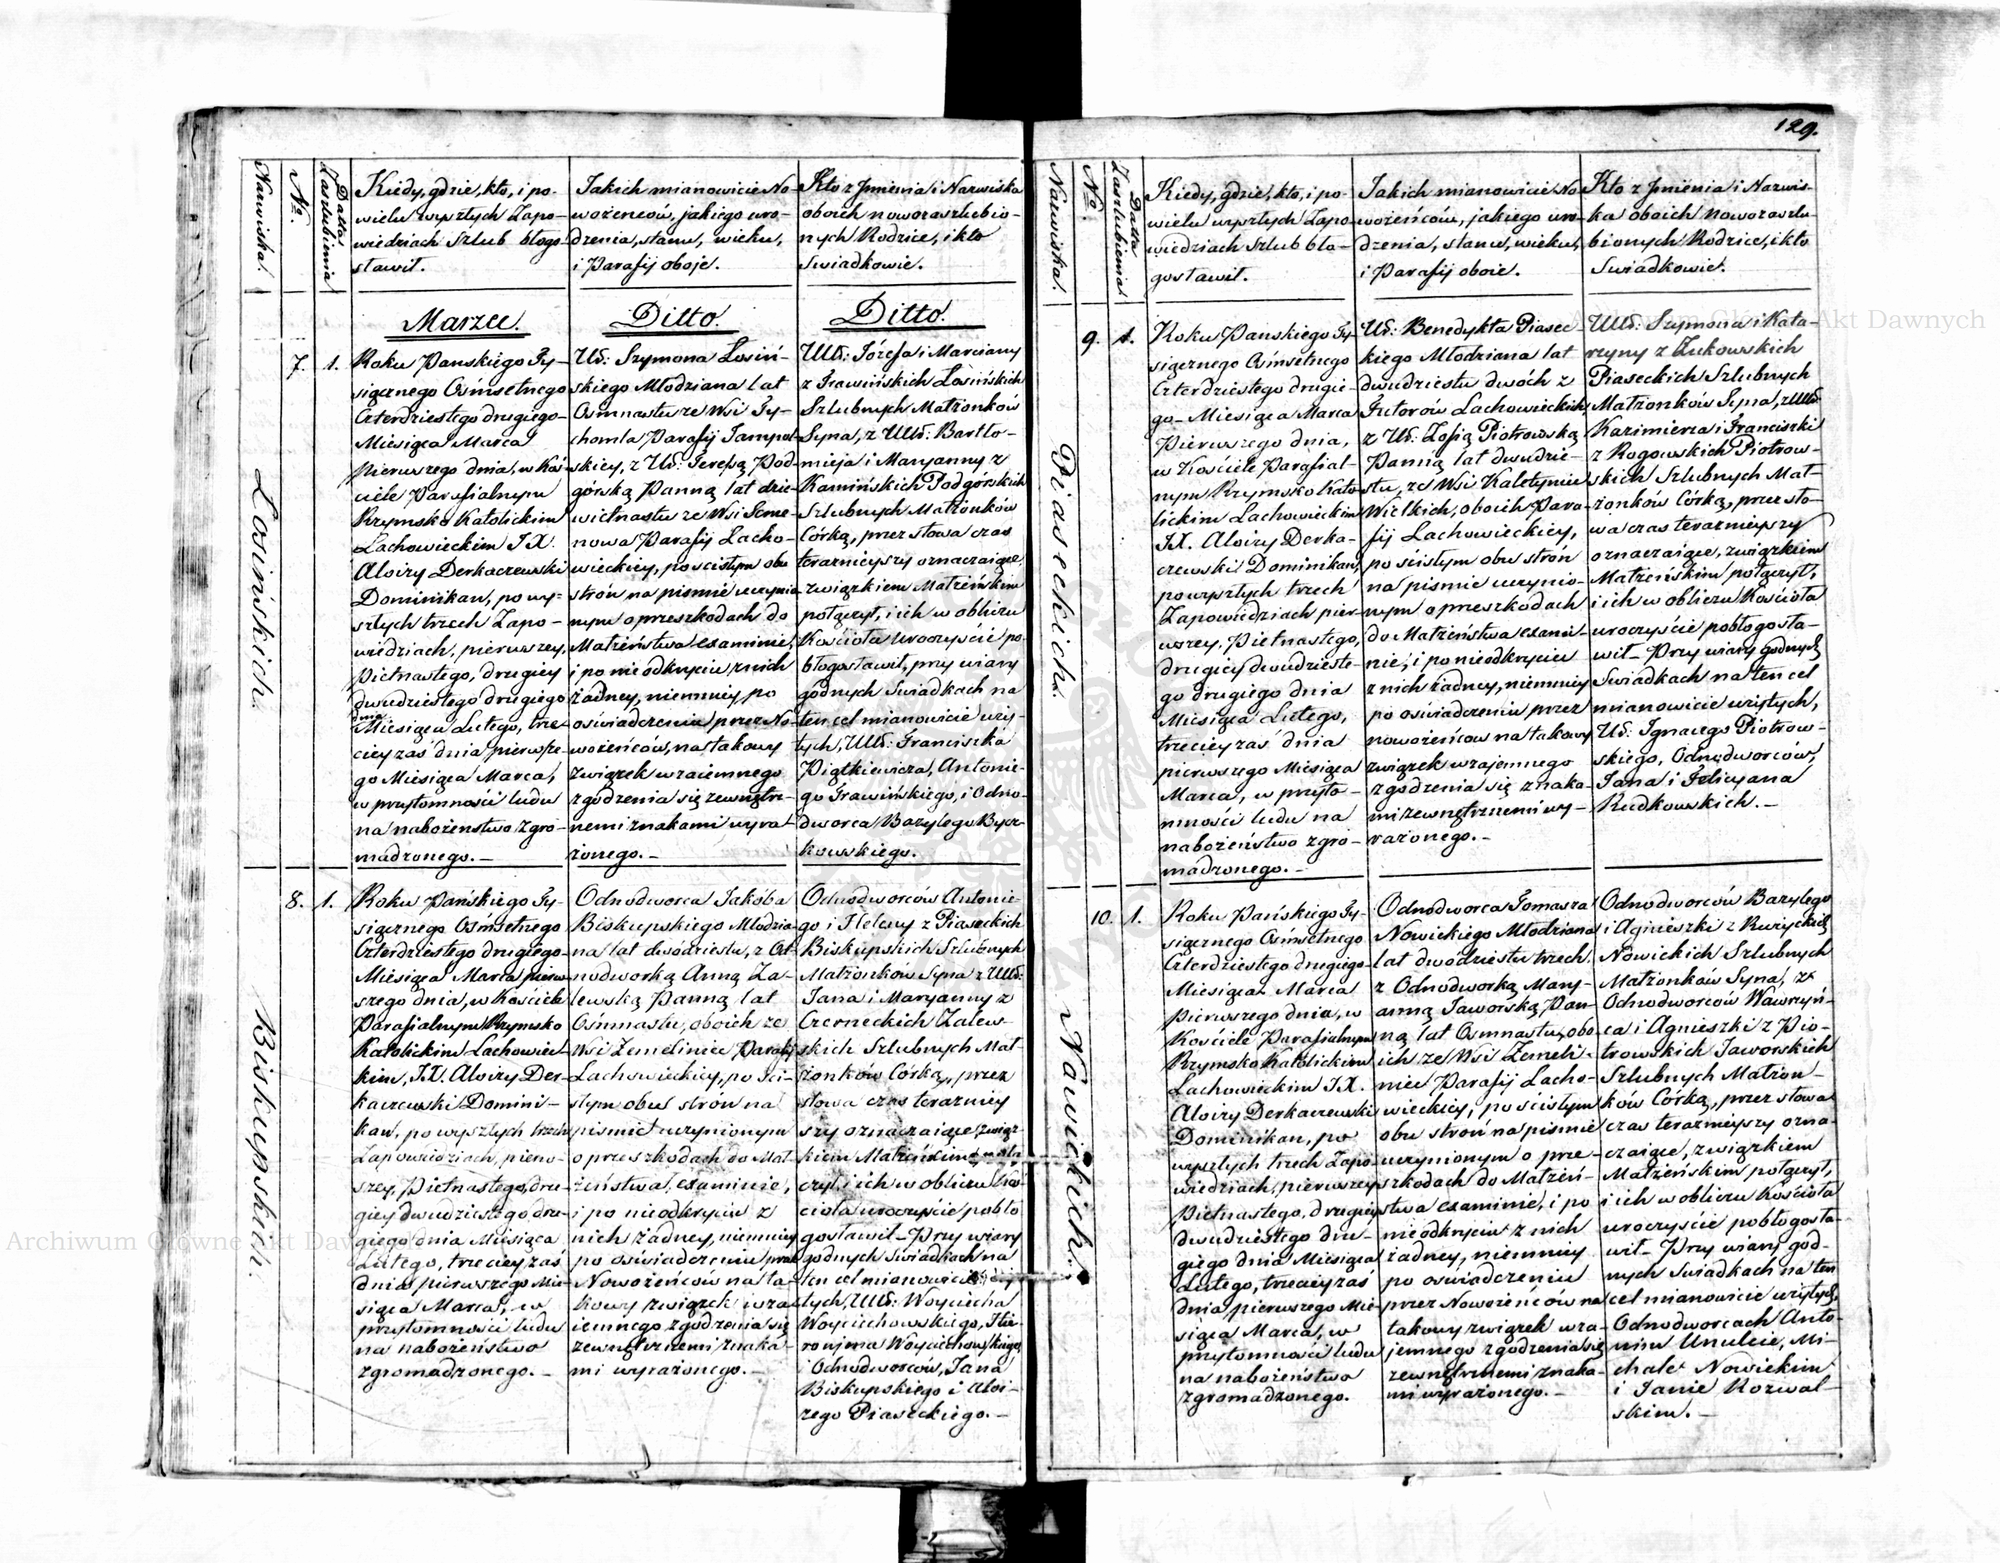 129.
Nazwiska.
No.
Datta Zaszlubienia
Kiedy, gdzie, kto, i po-
wielu wyszłych Zapo-
wiedziach Szlub błogo-
sławił.
Jakich mianowicie No-
wożeńców, jakiego uro-
dzenia, stanu, wieku,
i Parafij oboje.
Kto z Jmienia i Nazwiska
oboich nowozaszlubio-
nych Rodzice, i kto
Swiadkowie.
Marzec.
Ditto.
Ditto.
Łosińskich.
7.
1.
Roku Panskiego Ty-
siącznego Ośmsetnego
Czterdziestego drugiego
Miesiąca Marca
Pierwszego dnia, w Koś-
ciele Parafialnym
Rzymsko Katolickim
Lachowieckim JX.
Aloizy Derkaczewski
Dominikan, po wy-
szłych trzech Zapo-
wiedziach, pierwszey,
Pietnastego, drugiey
dwudziestego drugiego
dnia
Miesiąca Lutego, trze-
ciey zaś dnia pierwsze-
go Miesiąca Marca,
w przytomności ludu
na nabożeństwo zgro-
madzonego. -
Ur: Szymona Łosiń-
skiego Młodziana lat
Ośmnastu ze Wsi Ty-
chomla Parafij Jampol-
skiey, z Ur: Teresą Pod-
górską Panną lat dzie-
wietnastu ze Wsi Seme-
nowa Parafij Lacho-
wieckiey, po scisłym obu
strón na pismie uczynio-
nym o przeszkodach do
Matżeństwa examinie,
i po nieodkryciu z nich
żadney, niemniey po
oświadczeniu przez No-
wożeńców, na takowy
związek wzaiemnego
zgodzenia się zewnętrz-
nemi znakami wyra-
żonego. -
UUr: Józefa i Marcianny
z Trawińskich Łosińskich
Szlubnych Matżonków
Syna, z UUr: Bartło-
mieja i Maryanny z
Kamińskich Podgórskich
Szlubnych Matżonków
Córką, przez słowa czas
terazniejszy oznaczaiące,
związkiem Matżeńskim
połączył, i ich w obliczu
Kościoła uroczyście po-
błogosławił, przy wiary
godnych Swiadkach na
ten cel mianowicie uży-
tych, UUr: Franciszka
Piątkiewicza, Antonie-
go Trawińskiego, i Odno-
dworca Bazylego Bycz-
kowskiego.
Biskupskich.
8.
1.
Roku Pańskiego Ty-
siącznego Ośmsetnego
Czterdziestego drugiego
Miesiąca Marca pierw-
szego dnia, w Kościele
Parafialnym Rzymsko
Katolickim Lachowiec-
kim, JX. Aloizy Der-
kaczewski Domini-
kan, po wyszłych trzech
Zapowiedziach, pierw-
szey, Pietnastego, dru-
giey dwudziestego dru-
giego dnia Miesiąca
Lutego, trzeciey zaś
dnia pierwszego Mie-
siąca Marca, w
przytomności ludu
na nabożeństwo
zgromadzonego. -
Odnodworca Jakóba
Biskupskiego Młodzia-
na lat dwódziestu, z Od-
nodworką Anną Za-
lewską Panną lat
Ośmnastu, oboich ze
Wsi Zemelinec Parafij
Lachowieckiey, po ści-
słym obu strón na
pismie uczynionym
o przeszkodach do Mat-
żeństwa, examinie,
i po nieodkryciu z
nich żadney, niemniey
po oświadczeniu przez
Nowożeńców na ta-
kowy związek wza-
iemnego zgodzenia się
zewnętrznemi znaka-
mi wyrażonego. -
Odnodworców Antonie-
go i Heleny z Piaseckich
Biskupskich Szlubnych
Matżonków Syna z UUr:
Jana i Maryanny z
Czerneckich Zalew-
skich Szlubnych Mat-
żonków Córką, przez
słowa czas terazniey
szy oznaczaiące, związ-
kiem Matżeńskim połą-
czył, i ich w obliczu Koś-
cioła uroczyście pobło
gosławił - Przy wiary
godnych Swiadkach na
ten cel mianowicie uży-
tych, UUr: Woyciecha
Woyciechowskiego, Hie-
ronima Woyciechowskiego,
i Odnodworców, Jana
Biskupskiego i Aloi-
zego Piaseckiego. -
Nazwiska.
No.
Datta Zaszlubienia
Kiedy, gdzie, kto, i po-
wielu wyszłych Zapo-
wiedziach Szlub bło-
gosławił.
Jakich mianowicie No-
wożeńców, jakiego uro-
dzenia, stanu, wieku,
i Parafij oboie.
Kto z Jmienia i Nazwis-
ka oboich Nowozaszlu-
bionych Rodzice, i kto
Swiadkowie.
Piaseckich.
9.
1.
Roku Pańskiego Ty-
siącznego Ośmsetnego
Czterdziestego drugie-
go - Miesiąca Marca
Pierwszego dnia,
w Kościele Parafial-
nym Rzymsko Kato-
lickim Lachowieckim
JX. Aloizy Derka-
czewski Dominikan,
po wyszłych trzech
Zapowiedziach pier-
wszey, Pietnastego,
drugiey dwudzieste-
go drugiego dnia
Miesiąca Lutego,
trzeciey zaś dnia
pierwszego Miesiąca
Marca, w przyto-
mności ludu na
nabożeństwo zgro-
madzonego. -
Ur: Benedykta Piasec-
kiego Młodziana lat
dwudziestu dwóch z
Futorów Lachowieckich
z Ur: Zofią Piotrowską
Panną lat dwudzie-
stu, ze Wsi Kaletyniec
Wielkich, oboich Para-
fij Lachowieckiey,
po ścisłym obu strón
na pismie uczynio-
nym o przeszkodach
do Matżeństwa exami-
nie, i po nieodkryciu
z nich żadney, niemniey
po oświadczeniu przez
nowożeńcow na takowy
związek wzajemnego
zgodzenia się znaka-
mi zewnętrznemi wy-
rażonego. -
UUr: Szymona i Kata-
rzyny z Żukowskich
Piaseckich Szlubnych
Matżonków Syna, z UUr:
Kazimierza i Franciszki
z Rogowskich Piotrow-
skich Szlubnych Mat-
żonków Córką, przez sło-
wa czas terazniejszy
oznaczaiące, związkiem
Matżeńskim połączył,
i ich w obliczu Kościoła
uroczyście pobłogosła-
wił - Przy wiary godnych
Swiadkach na ten cel
mianowicie użytych,
Ur: Ignacego Piotrow-
skiego, Odnodworców,
Jana i Felicyana
Rudkowskich. -
Nowickich.
10.
1.
Roku Pańskiego Ty-
siącznego Ośmsetnego
Czterdziestego drugiego
Miesiąca Marca
Pierwszego dnia, w
Kościele Parafialnym
Rzymsko Katolickim
Lachowieckim JX.
Aloizy Derkaczewski
Dominikan, po
wyszłych trzech Zapo-
wiedziach, pierwszey
Pietnastego, drugiey
dwudziestego dru-
giego dnia Miesiąca
Lutego, trzeciey zaś
dnia pierwszego Mie-
siąca Marca, w
przytomności ludu
na nabożeństwo
zgromadzonego.
Odnodworca Tomasza
Nowickiego Młodziana
lat dwódziestu trzech
z Odnodworką Mary-
anną Jaworską Pan-
ną lat Ośmnastu, obo-
ich ze Wsi Zemeli-
niec Parafij Lacho-
wieckiey, po ścisłym
obu stron na pismie
uczynionym o prze-
szkodach do Matżeń-
stwa examinie, i po
nieodkryciu z nich
żadney, niemniey
po oświadczeniu
przez Nowożeńców na
takowy związek wza-
jemnego zgodzenia się
zewnętrznemi znaka-
mi wyrażonego. -
Odnodworców Bazylego
i Agnieszki z Ruzyckich
Nowickich Szlubnych
Matżonków Syna, z
Odnodworców Wawrzyń-
ca i Agnieszki z Pio-
trowskich Jaworskich
Szlubnych Matżon-
ków Córką, przez słowa
czas terazniejszy ozna-
czaiące, związkiem
Matżeńskim połączył,
i ich w obliczu Kościoła
uroczyście pobłogosła-
wił - Przy wiary god-
nych Swiadkach na ten
cel mianowicie użytych,
Odnodworcach Anto-
nim Unulcie, Mi-
chale Nowickim
i Janie Rozwal-
skim. -
Archiwum Główne Akt Dawnych
Archiwum Główne Akt Dawnych